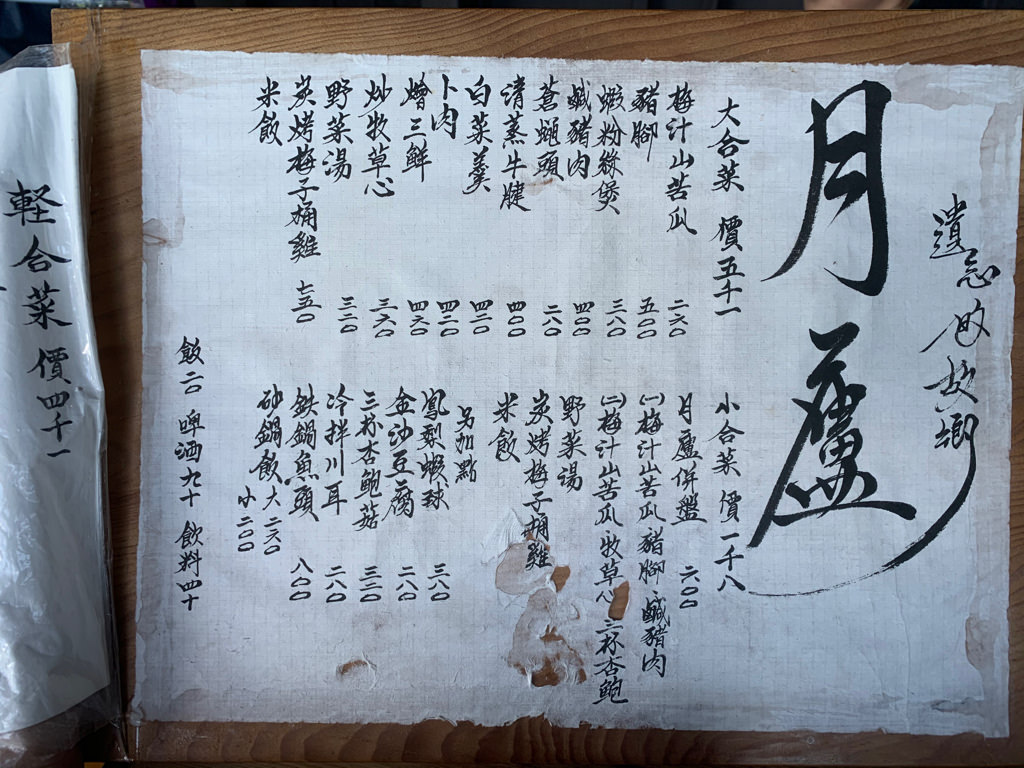 遺忘的故鄉
月廬
大合菜 價五千一
梅汁山苦瓜 二六〇
豬腳 五〇〇
蝦粉絲煲 三八〇
鹹豬肉 四〇〇
蒼蠅頭 二八〇
清蒸牛腱 四〇〇
白菜羹 四二〇
卜肉 四二〇
燴三鮮 四六〇
炒牧草心 三六〇
野菜湯 三二〇
炭烤梅子桶雞 七五〇
米飯
小合菜 價一千八
月廬併盤 六〇〇
㈠梅汁山苦瓜、豬腳、鹹豬肉
㈡梅汁山苦瓜、牧草心、三杯杏鮑
野菜湯
炭烤梅子桶雞
米飯
另加點
鳳梨蝦球 三八〇
金沙豆腐 二八〇
三杯杏鮑菇 三二〇
冷拌川耳 二八〇
鉄鍋魚頭 八〇〇
砂鍋飯 大二六〇
小二〇〇
飯二〇 啤酒九十 飲料四十
軽合菜 價四千一